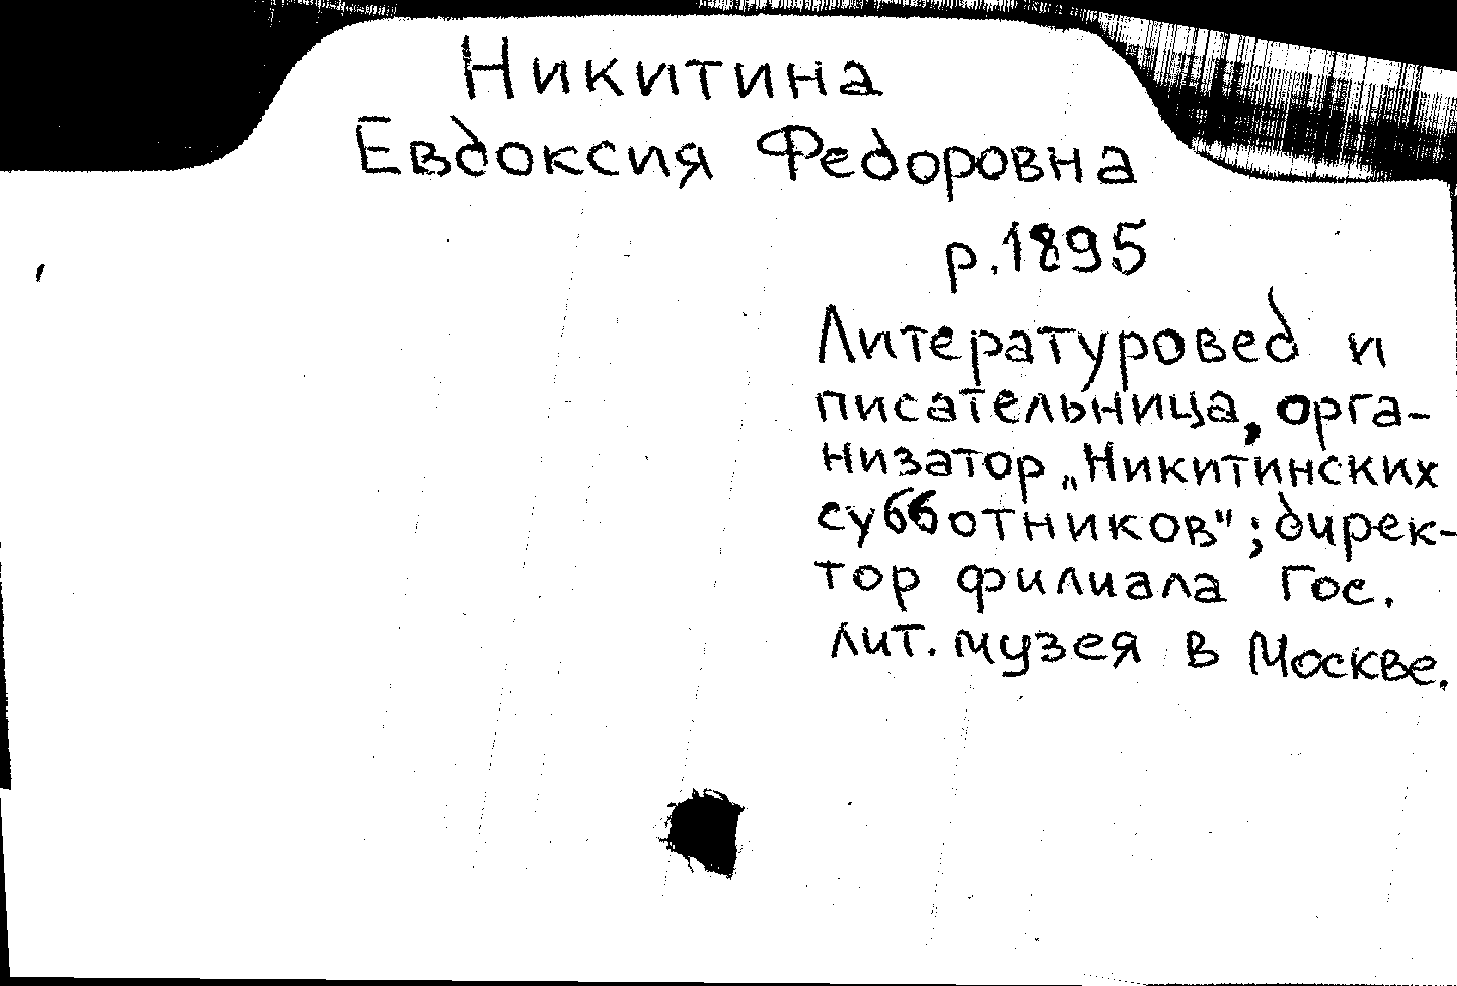 Никитина
Евдоксия Федоровна
р.1895
Литературовед и
писательница, орга-
низатор „Никитинских
субботников"; дирек-
тор филиала Гос.
лит. музея в Москве.